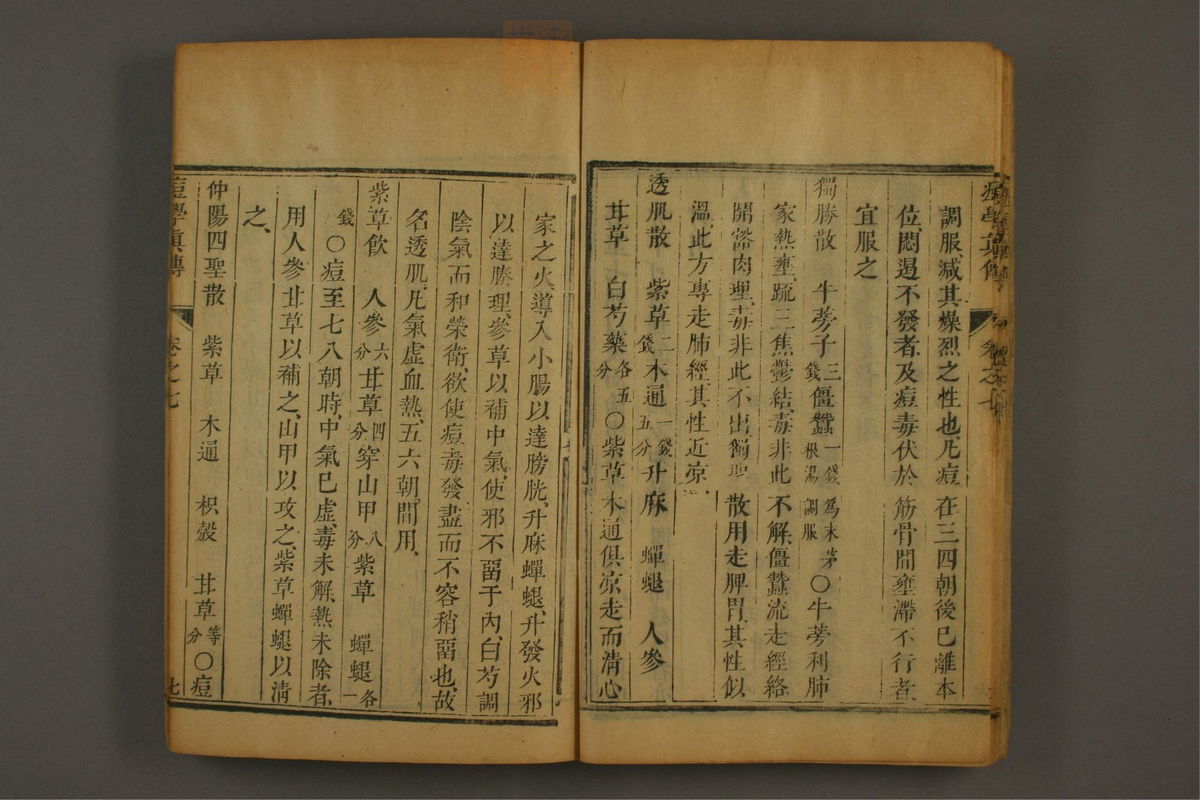 調服減其燥烈之性也凡痘在三四朝後已離本
位悶遏不發者及痘毒伏於筋骨間壅滯不行者
宜服之
獨勝散　牛蒡子三錢僵蠶一錢為末茅根湯調服〇牛蒡利肺
家熱壅疏三焦鬱結毒非此不解僵蠶流走經絡
開豁肉理毒非此不出獨聖散用走脾胃其性似
溫此方專走肺經其性近凉
透肌散　紫草二錢木通一錢五分升麻　蟬蛻　人參
甘草　白芍藥各五分〇紫草木通俱凉走而清心
家之火導入小腸以達膀胱升麻蟬蛻升發火邪
以達腠理參草以補中氣使邪不留于內白芍調
陰氣而和榮衛欲使痘毒發盡而不容稍留也故
名透肌凡氣虛血熱五六朝間用
紫草飲　人參六分甘草四分穿山甲八分紫草　蟬蛻各一
錢〇痘至七八朝時中氣已虛毒未解熱未除者
用人參甘草以補之山甲以攻之紫草蟬蛻以清
之
仲陽四聖散　紫草　木通　枳殼　甘草等分〇痘
痘學真傳　卷之七　七